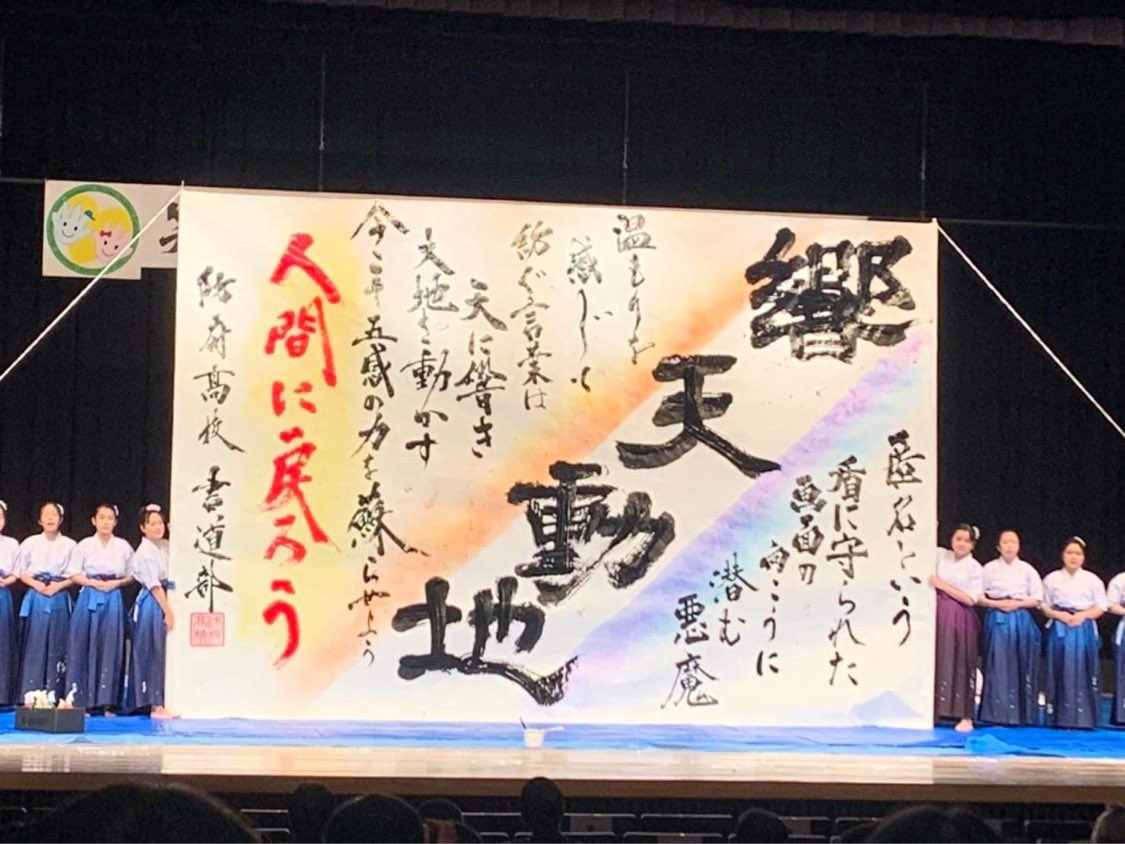 響天動地
匿名という
盾に守られた
画面の
向こうに
潜む
悪魔
温もりを
感じ
紡ぐ言葉は
天に響き
大地を動かす
今こそ五感の力を蘇らせよう
人間に戻ろう
防府高校 書道部